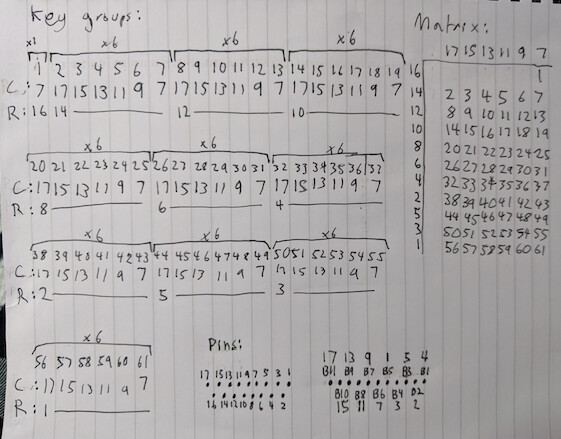 Key groups:
x1 x6 x6 x6
1 2 3 4 5 6 7 8 9 10 11 12 13 14 15 16 17 18 19
C: 7 17 15 13 11 9 7 17 15 13 11 9 7 17 15 13 11 9 7
R: 16 14 12 10
x6 x6 x6
20 21 22 23 24 25 26 27 28 29 30 31 32 33 34 35 36 37
C: 17 15 13 11 9 7 17 15 13 11 9 7 17 15 13 11 9 7
R: 8 6 4
x6 x6 x6
38 39 40 41 42 43 44 45 46 47 48 49 50 51 52 53 54 55
C: 17 15 13 11 9 7 17 15 13 11 9 7 17 15 13 11 9 7
R: 2 5 3
x6
56 57 58 59 60 61
C: 17 15 13 11 9 7
R: 1
Matrix:
17 15 13 11 9 7
16 1
14 2 3 4 5 6 7
12 8 9 10 11 12 13
10 14 15 16 17 18 19
8 20 21 22 23 24 25
6 26 27 28 29 30 31
4 32 33 34 35 36 37
2 38 39 40 41 42 43
5 44 45 46 47 48 49
3 50 51 52 53 54 55
1 56 57 58 59 60 61
Pins:
17 15 13 11 9 7 5 3 1
16 14 12 10 8 6 4 2
17 13 9 1 5 4
B11 B9 B7 B5 B3 B1
B10 B8 B6 B4 B2
15 11 7 3 2